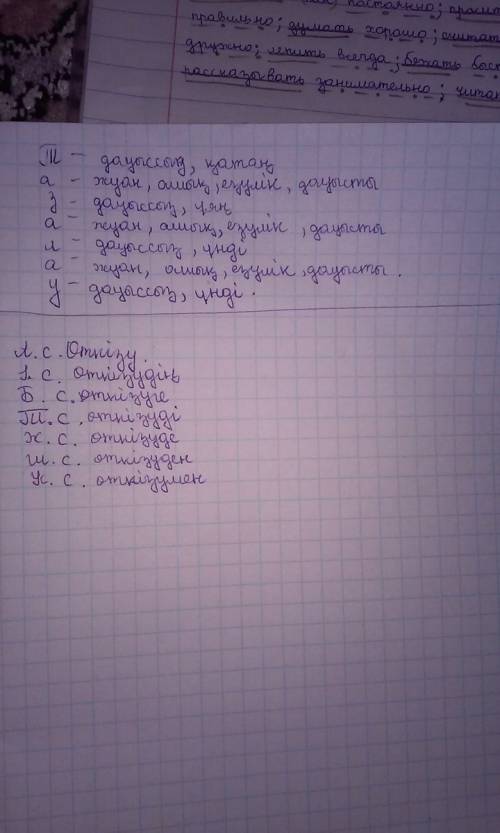 постоянно; просит
правильно; думать хорошо; считат
дружно; лепить всегда; бежать быст
рассказывать занимательно; читан
Т - дауыссыз, қатаң
а - жуан, ашық, езулік, дауысты
з - дауыссыз, ұяң
а - жуан, ашық, езулік, дауысты
л - дауыссыз, үнді
а - жуан, ашық, езулік, дауысты.
у - дауыссыз, үнді.
А. с. Откізу.
І. с. откізудің
Б. с. откізуге
Т. с. откізуді
Ж. с. откізуде
Ш. с. откізуден
К. с. откізумен